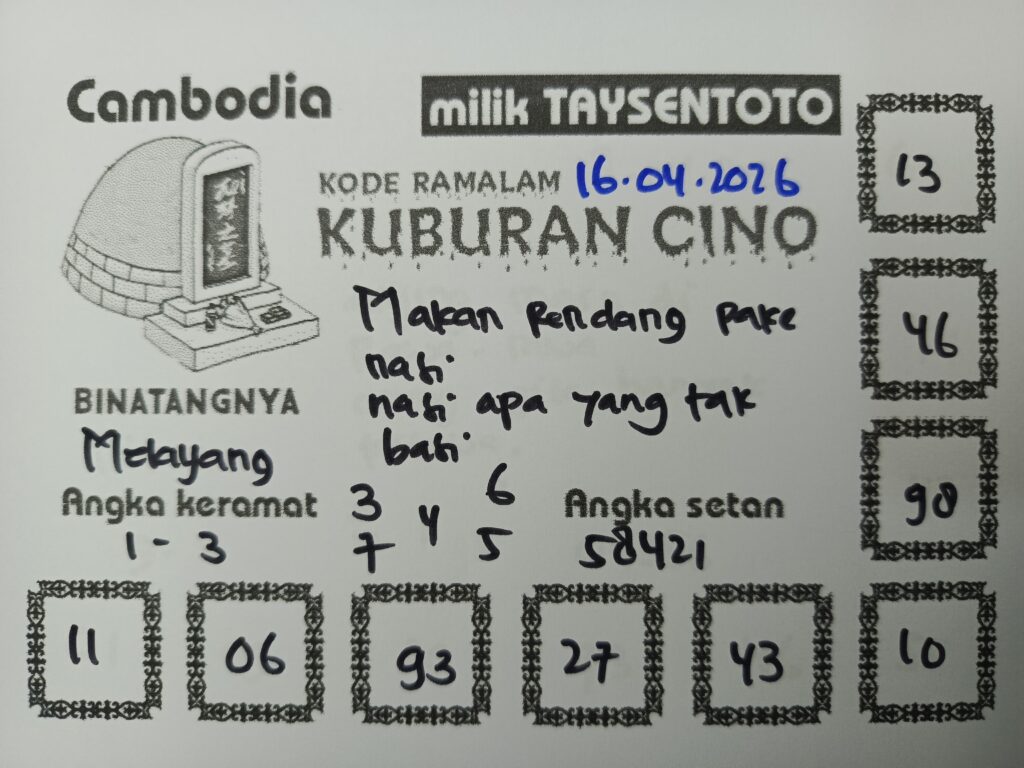 Cambodia
milik TAYSENTOTO
KODE RAMALAM 16.04.2026
KUBURAN CINO
Makan Rendang pake
nasi
nasi apa yang tak
basi
BINATANGNYA
Melayang
Angka keramat
1 - 3
3 6
4
7 5
Angka setan
58421
13
46
98
11
06
93
27
43
10